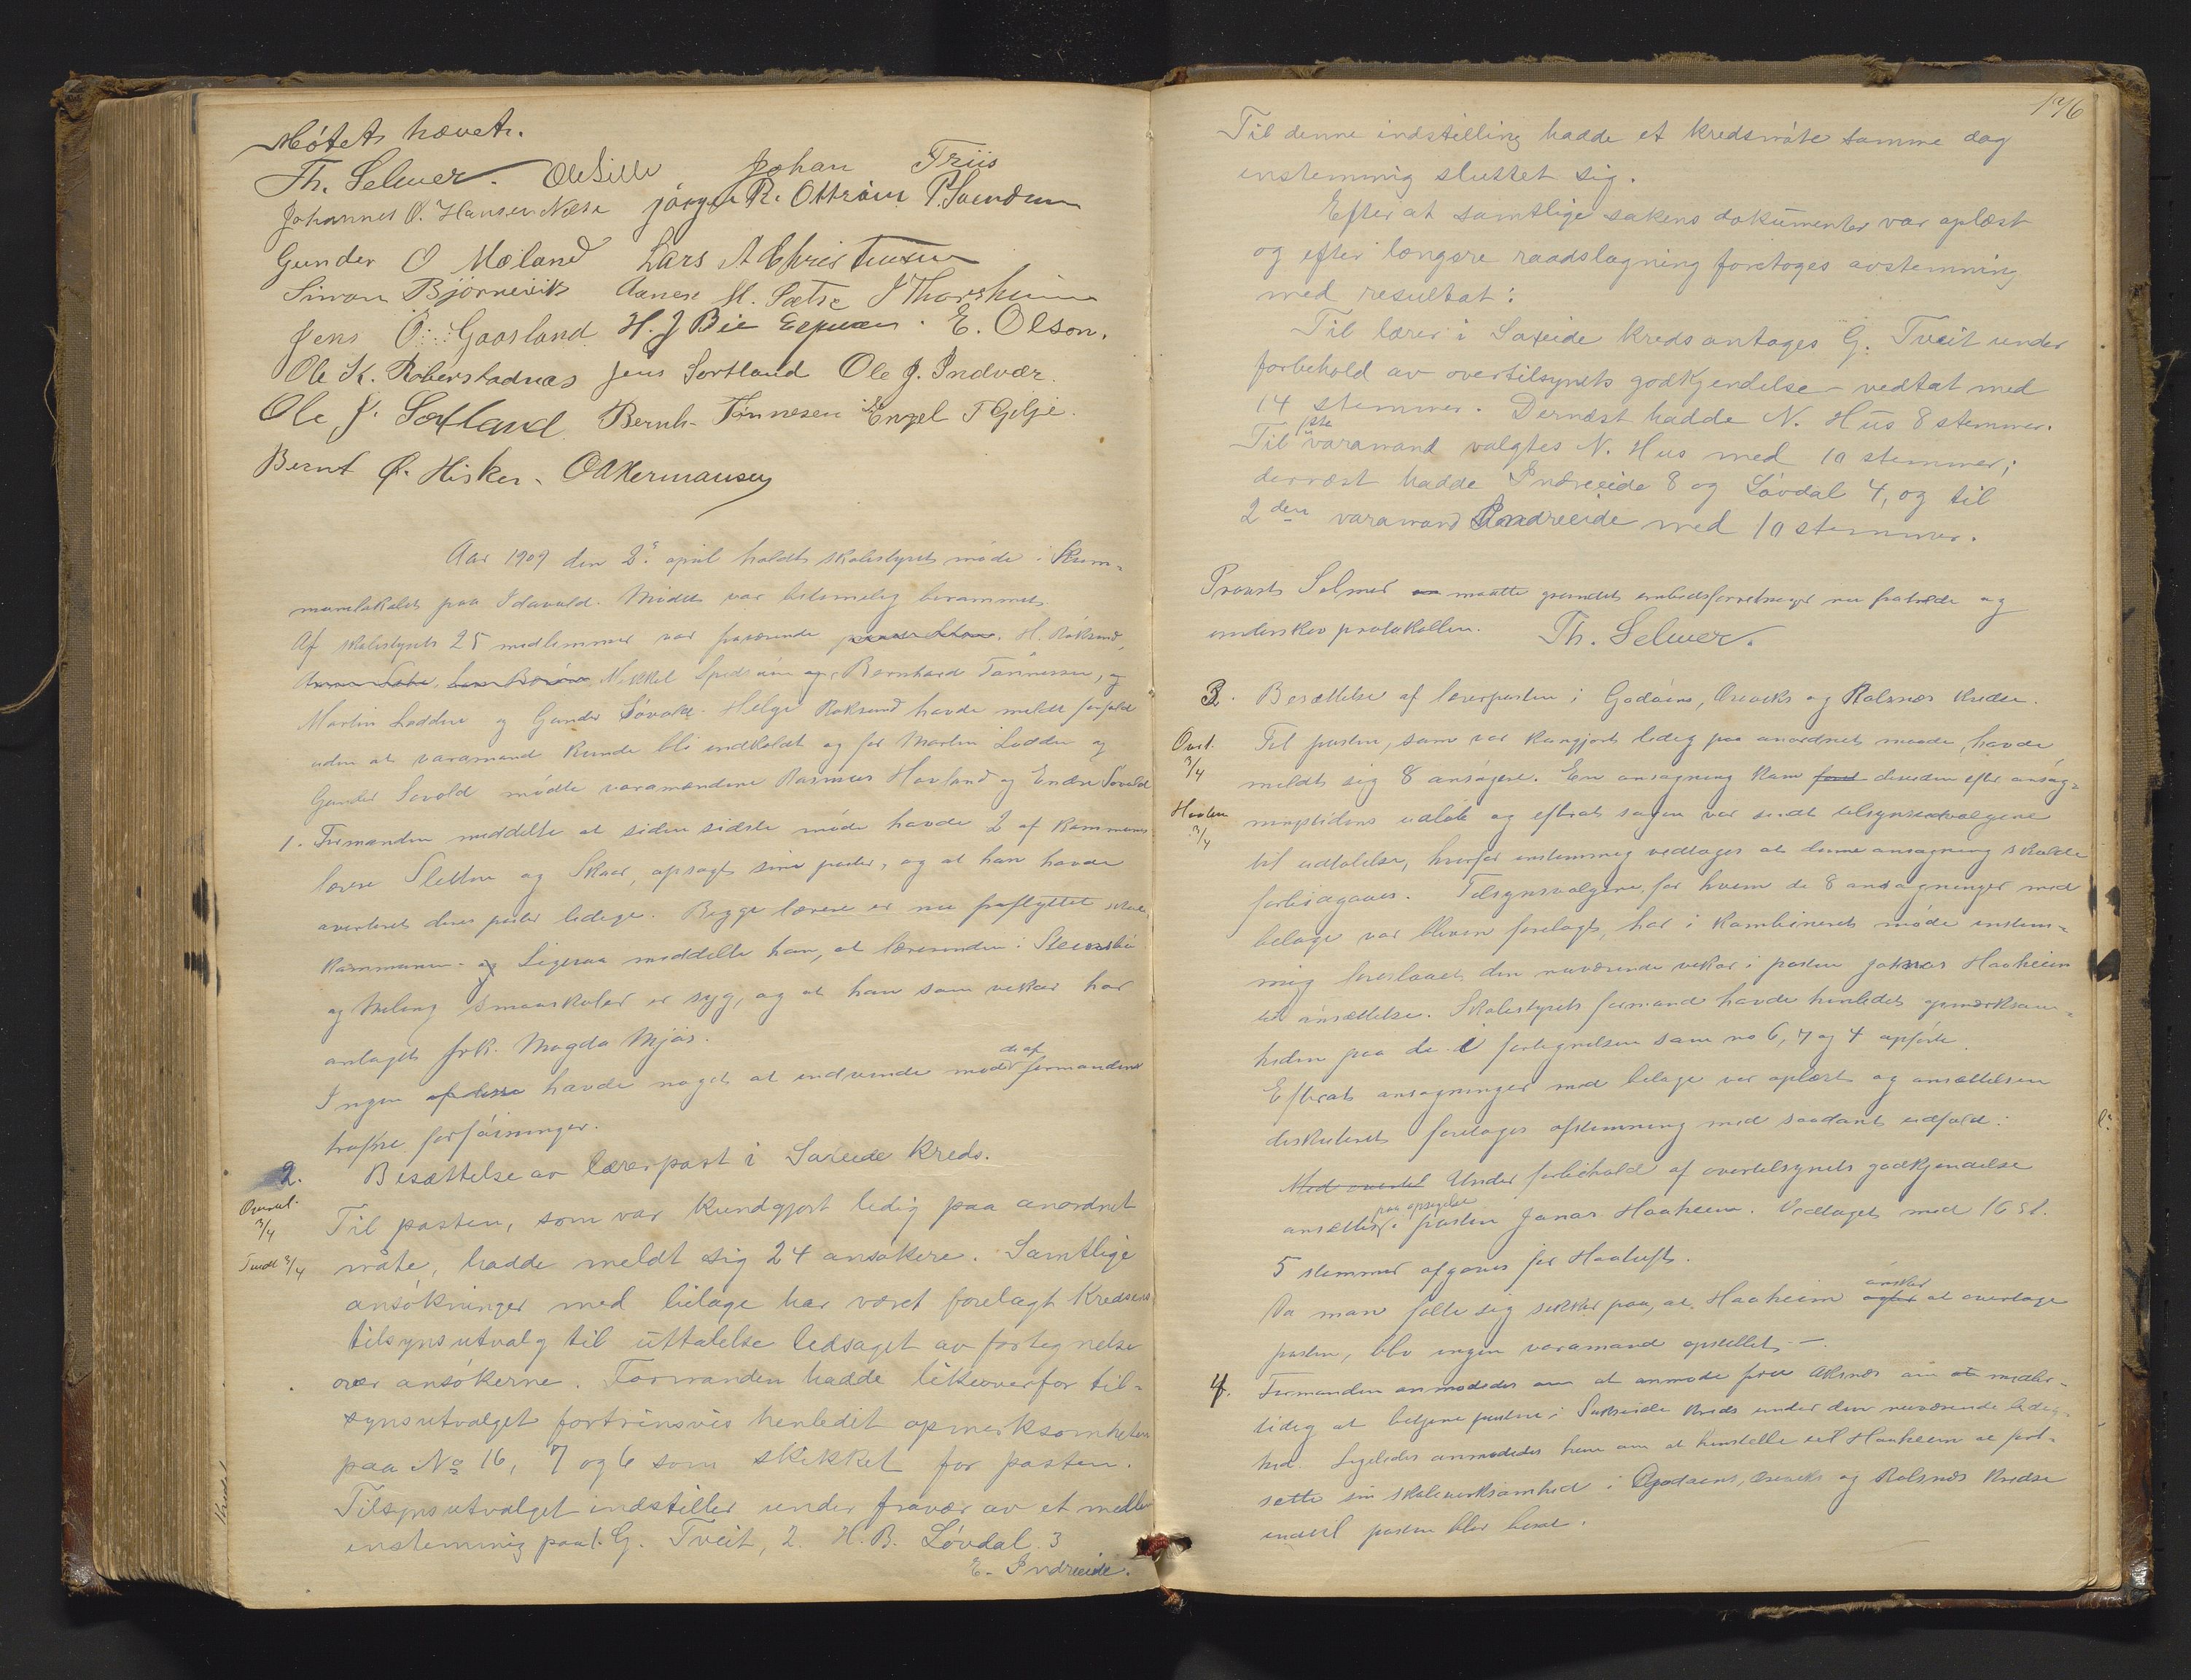 Mötet hævet.
Th. Selmer. Ole Lille Johan Friis
Johannes O. Hansen Næse Jörgen R. Ottröim P. Svendsen
Gunder O Mæland Lars A Christensen
Simon Björnevik Aanen M. Sætre J Thorsheim
Jens O. Gaasland H. J Bie E. Olson.
Ole K. Roberstadnæs Jens Sortland Ole J. Indvær.
Ole J. Sortland Bernh. Tönnesen Engel T Gilje.
Bernt Ø. Hisken. O Akermansen
Aar 1909 den 2. april holdt skolestyret möde i Kom-
munelokalet paa Idavold. Mödet var betimelig berammet.
Af skolestyrets 25 medlemmer var fraværende H. Röksund,
Mikkel Bernhard Tönnessen, og
Martin Loddin og Gunder Søvold. Helge Röksund havde meldt forfald
uden at varamand kunde bli indkaldt og for Martin Loddin og
Gunder Søvold mödte varamændene Rasmus Hovland og Endre Søvold
1. Formanden meddelte at siden sidste möde havde 2 af kommunens
lærere Sletten og Skaar, opsagt sine poster, og at han havde
averteret deres poster ledige. Begge lærere er nu fraflyttet
kommunen. og Ligesaa meddelte han, at lærerinden i
og Meling smaaskoler er syg, og at han som vikar har
antaget frk. Magda Mjös.
Ingen af disse havde noget at indvende mod de af formanden
trufne forföininger.
2. Besættelse av lærerpost i Sareide Kreds.
Overtil. 3/4
Tveit 3/4
Til posten, som var kundgjort ledig paa anordnet
måte, hadde meldt sig 24 ansøkere. Samtlige
ansökninger med bilage har været forelagt Kredsens
tilsynsutvalg til uttalelse ledsaget av fortegnelse
over ansökerne. Formanden hadde likeoverfor til-
synsutvalget fortrinsvis henledit opmerksomheten
paa No 16, 7 og 6 som skikket for posten.
Tilsynsutvalget indstiller under fravær av et medlem
enstemmig paa 1. G. Tveit, 2. H. B. Lövdal 3
E. Indreeide.
176
Til denne indstilling hadde et kredsmöte samme dag
enstemmig sluttet sig.
Efter at samtlige sakens dokumenter var oplæst
og efter længere raadslagning foretoges avstemning
med resultat:
Til lærer i Sareide kreds antoges G. Tveit under
forbehold av overtilsynets godkjendelse – vedtat med
14 stemmer. Dernæst hadde N. Hus 8 stemmer.
Til 1ste varamand valgtes N. Hus med 10 stemmer;
dernæst hadde Indreeide 8 og Lövdal 4, og til
2den varamand Indreeide med 10 stemmer.
Provst Selmer maatte grundet embedsforretninger nu fratræde og
underskev protokollen. Th. Selmer.
3. Besættelse af lærerposten i Godöens, Öreviks og Rolsnæs kredse.
Overt. 3/4
Haaheim 3/4
Til posten, som var kungjort ledig paa anordnet maade, havde
meldt sig 8 ansögere. En ansøgning kom desuden efter ansøg-
ningstidens udløb og efterat sagen var sendt tilsynsudvalgene
til udtalelse, hvorfor enstemmig vedtoges at denne ansøgning skulde
forbigaaes. Tilsynsvalgene, for hvem de 8 ansøgninger med
belage var bleven forelagt, har i kombineret möde enstem-
mig foreslaaet den nuværende vikar i posten Johnas Haaheim
til ansættelse. Skolestyrets formand havde henledet opmerksom-
heden paa de i fortegnelsen som no 6, 7 og 4 opførte.
Efterat ansøgninger med belage var oplæst og ansættelsen
diskuteret foretoges afstemning med saadant udfald:
Med overtil Under forbehold af overtilsynets godkjendelse
ansættes paa opsigelse i posten Jonas Haaheim. Vedtaget med 16 st.
5 stemmer afgaves for Haaluft.
Da man følte sig sikker paa, at Haaheim ønsker at overtage
posten, blev ingen varamand opstillet. —
4. Formanden anmodedes om at anmode frue Aksnes om at midler-
tidig at betjene posten i Sareide kreds under den nuværende ledig-
hed. Ligeledes anmodedes han om at henstille til Haaheim at fort-
sætte sin skolevirksomhed i Godöens, Öreviks og Rolsnæs kredse
indtil posten blir besat.